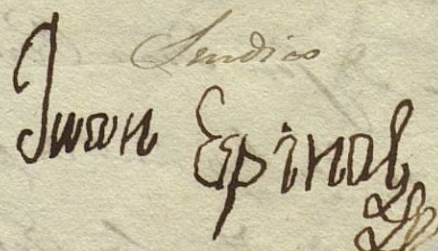 Sindico
Juan Epinal